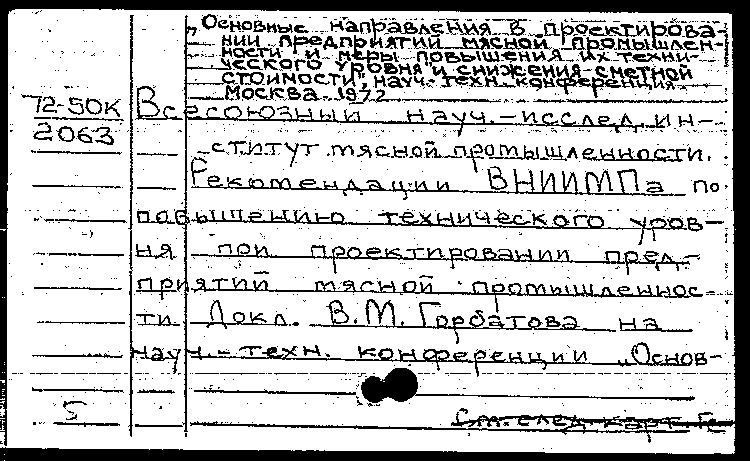 „Основные направления в проектирова-
нии предприятий мясной промышлен-
ности и меры повышения их техни-
ческого уровня и снижения сметной
стоимости", науч.-техн. конференция.
Москва. 1972
72-50К
2063
Всесоюзный науч.-исслед. ин-
ститут мясной промышленности.
Рекомендации ВНИИМПа по
повышению технического уров-
ня при проектировании пред-
приятий мясной промышленнос-
ти. Докл. В.М. Горбатова на
науч.-техн. конференции „Основ-
5
См. след. карт.